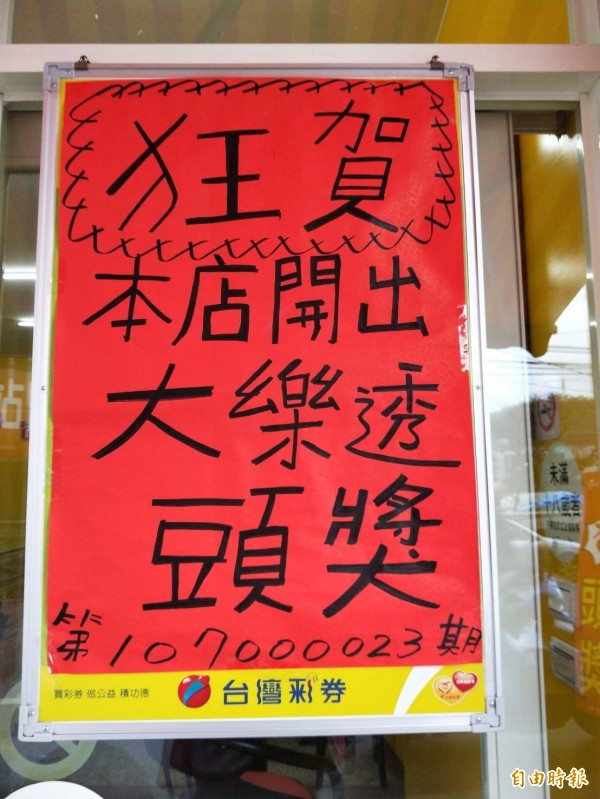 狂賀
本店開出
大樂透
頭獎
第107000023期
買彩券 做公益 積功德
台灣彩券
未滿
十八歲者
頭獎
站
自由時報